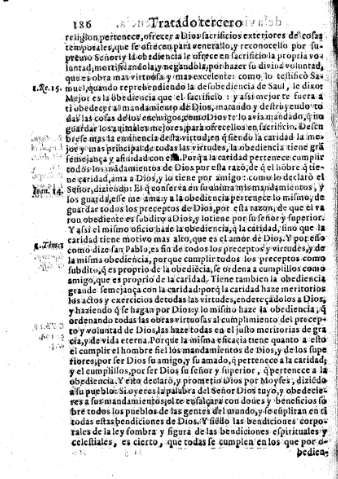 186
Tratado tercero
religion pertenece, ofrecer a Dios sacrificios exteriores de cosas
temporales, que se ofrecen para venerallo, y reconocello por su-
premo Señor: y la obediencia le ofrece en sacrificio la propria vo
luntad, mortificandola, y negandola, por hazer su divina voluntad,
que es obra mas virtuosa y mas excelente: como lo testificó Sa-
1.Re.15. muel, quando reprehendiendo la desobediencia de Saul, le dixo:
Mejor es la obediencia que el sacrificio: y assi mejor te fuera a
ti obedecer al mandamiento de Dios, matando y destruyendo to
das las cosas de los enemigos, como Dios te lo avia mandado, q̃ no
guardar los animales mejores, para ofrecellos en sacrificio. Descu
brese mas la eminencia desta virtud, en q̃ siendo la caridad la me-
jor y mas principal de todas las virtudes, la obediencia tiene grã
semejança y afinidad con ella. Porq̃ a la caridad pertenece cumplir
todos los mandamientos de Dios por esta razõ, de q̃ el hõbre q̃ tie-
ne caridad, ama a Dios, y lo tiene por amigo: como lo declaró el
Ioan. 14. Señor, diziendo: El q̃ conserva en su anima mis mandamientos, y
los guarda, esse me ama: y a la obediencia pertenece lo mismo, de
guardar todos los preceptos de Dios, por esta razon, de que el va
ron obediente es subdito a Dios, y lo tiene por su señor y superior.
Y assi el mismo oficio haze la obediencia, q̃ la caridad, sino que la
caridad tiene motivo mas alto, que es el amor de Dios. Y por esso
1.Timo.1 como dize san Pablo, es fin de todos los preceptos y virtudes, y de
la misma obediencia, porque cumplir todos los preceptos como
subdito, q̃ es proprio de la obediẽcia, se ordena a cumplillos como
amigo, que es proprio de la caridad. Tiene tambien la obediencia
grande semejança con la caridad: porq̃ la caridad haze meritorios
los actos y exercicios de todas las virtudes, endereçãdolos a Dios,
y haziendo q̃ se hagan por Dios: y lo mismo haze la obediencia, q̃
ordenando todas las obras virtuosas al cumplimiento del precep-
to y voluntad de Dios, las haze todas en el justo meritorias de gra
cia, y de vida eterna. Porque la misma eficacia tiene quanto a esto
el cumplir el hombre fiel los mandamientos de Dios, y de los supe
riores, por ser Dios su amigo, y su amado, q̃ pertenece a la caridad,
y el cumplillos, por ser Dios su señor y superior, q̃ pertenece a la
obediencia. Y esto declaró, y prometio Dios por Moyses, diziẽdo
a su pueblo: Si oyeres la palabra del Señor Dios tuyo, y obedecie-
res a sus mandamientos, el te ensalçara con dones y beneficios so
bre todos los pueblos de las gentes del mundo, y se cũpliran en ti
todas estas bendiciones de Dios. Y siẽdo las bendiciones corpo-
rales de la ley sombra y figura de las bendiciones espirituales y
celestiales, es cierto, que todas se cumplen en los que por o-
bedien-